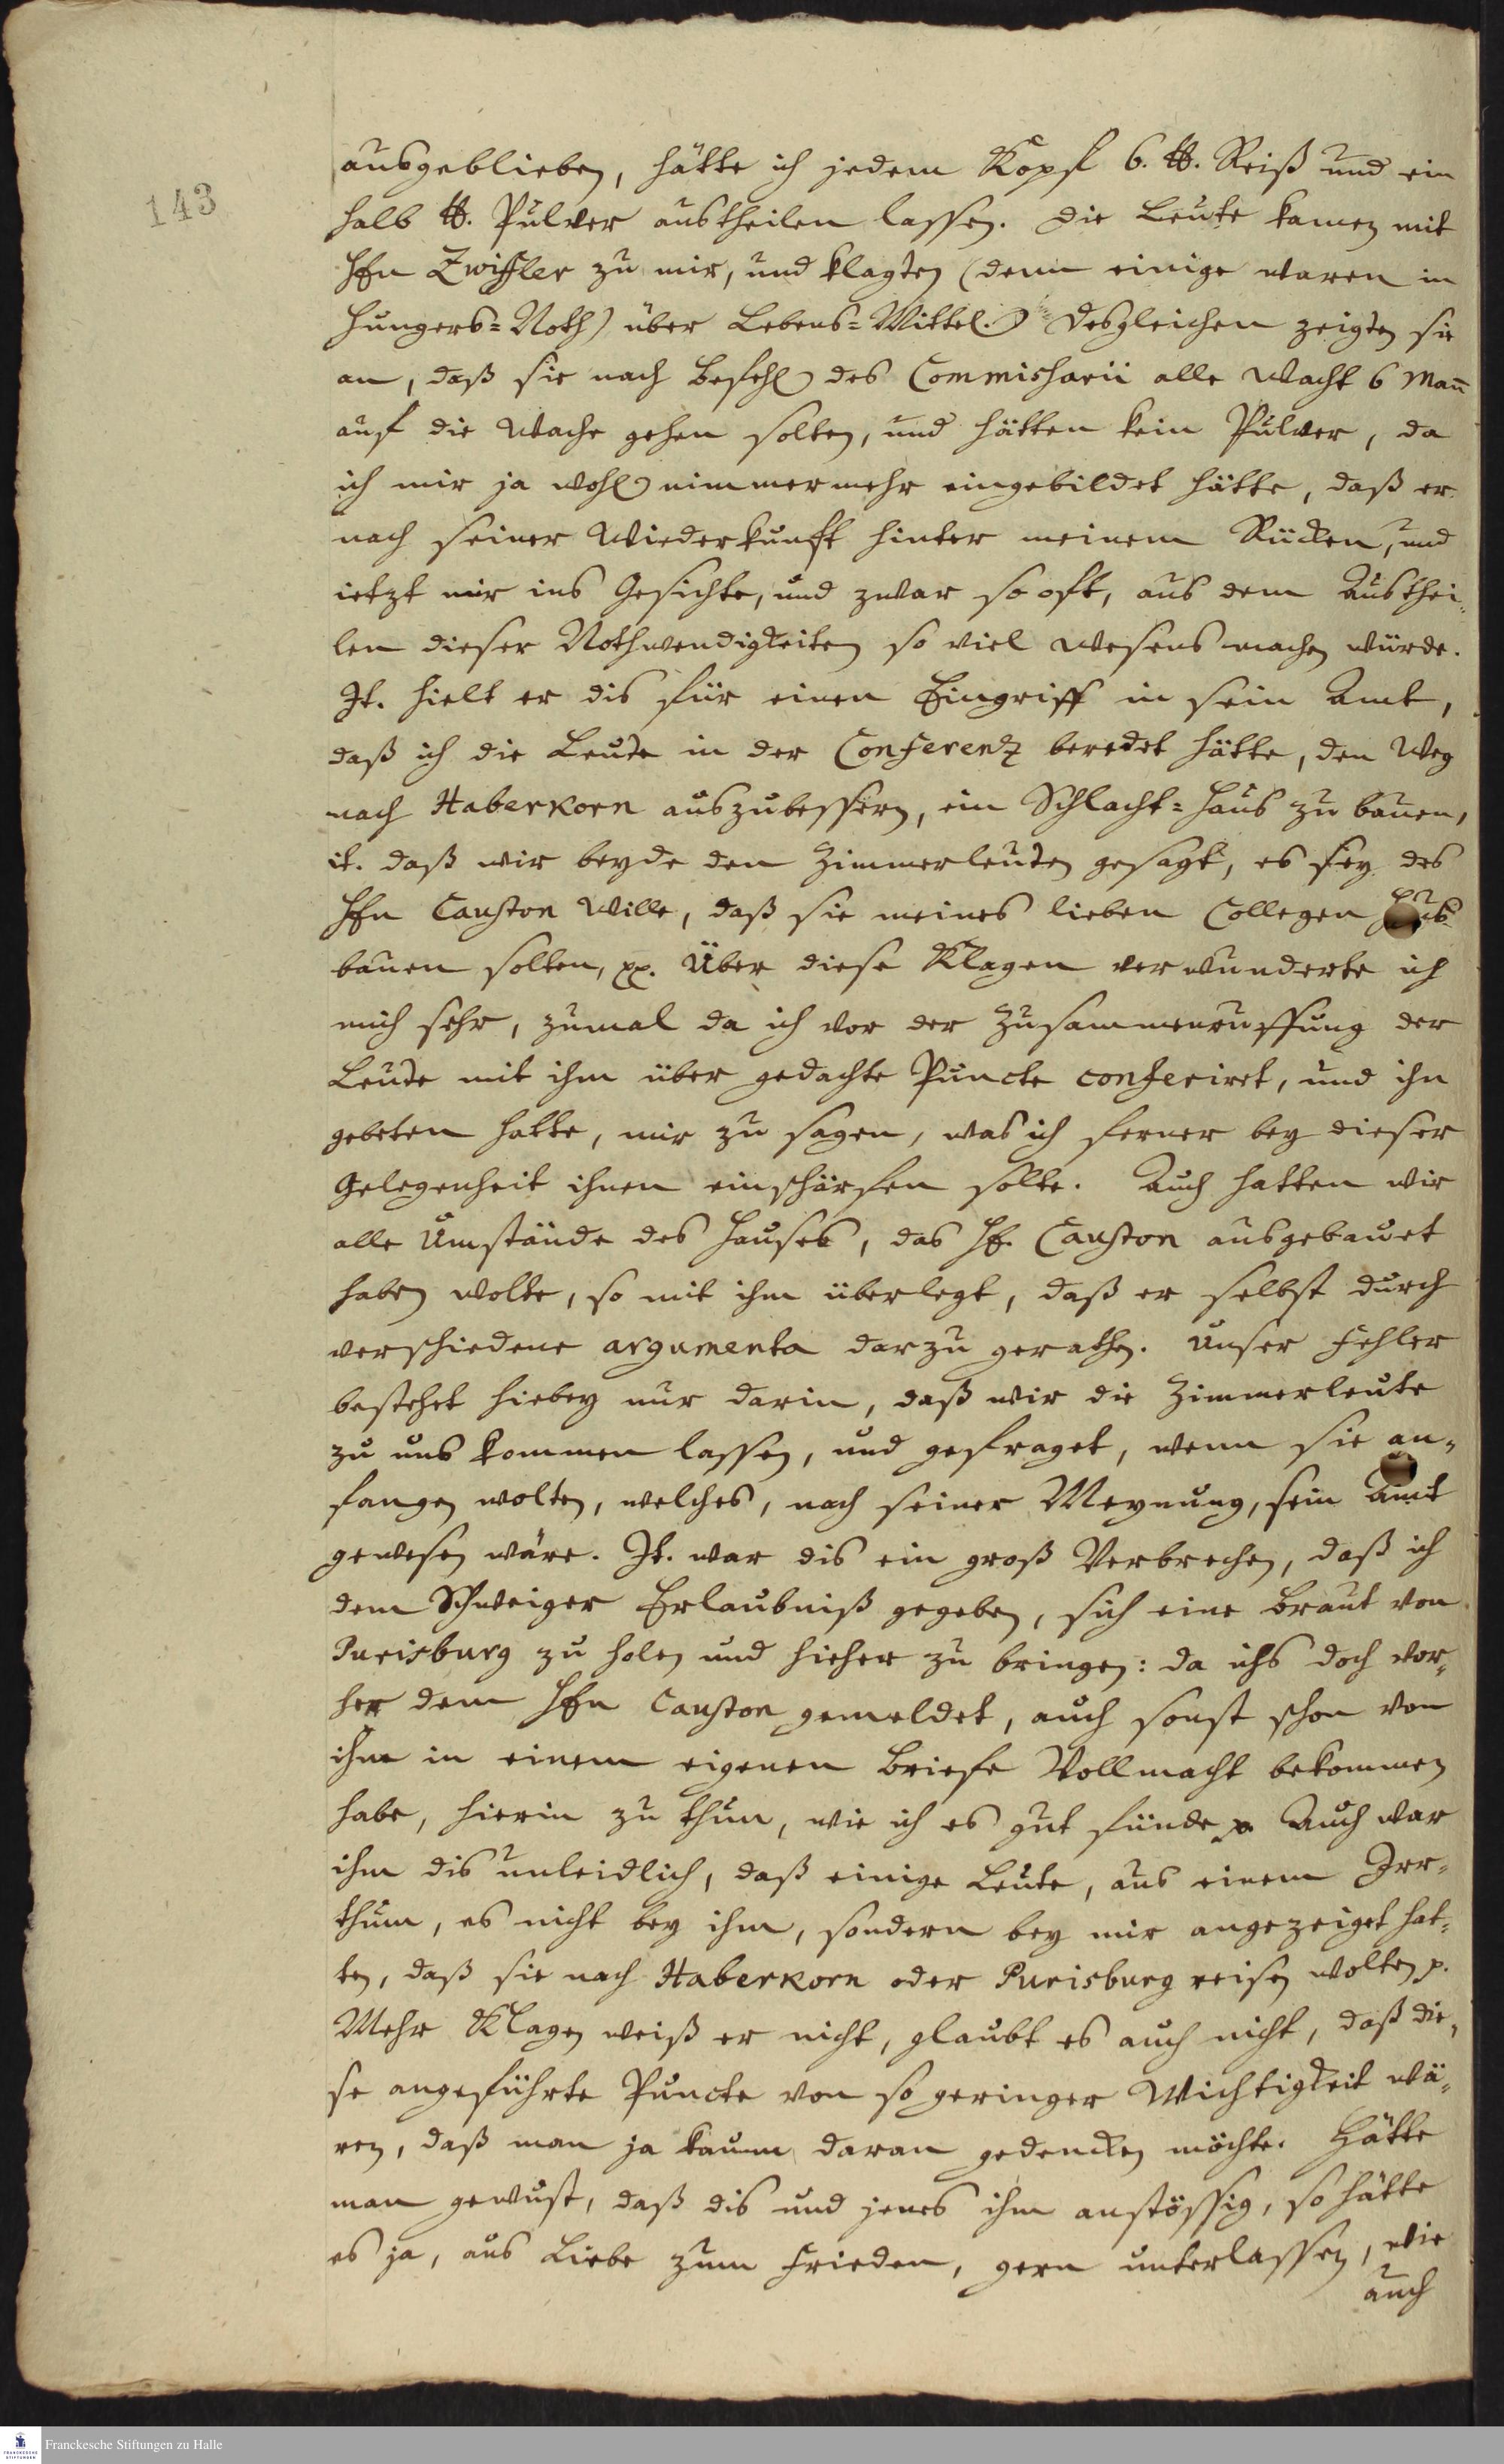 143
ausgeblieben, hätte ich jedem Kopf 6. ℔. Reiß und ein
halb ℔. Pulver austheilen lassen. Die Leute kamen mit
Hℓn Zwiffler zu mir, und klagten (denn einige waren in
Hungers=Noth) über Lebens=Mittel. Desgleichen zeigten sie
an, daß sie nach Befehl des Commissarii alle Nacht 6 Mañ
auf die Wache gehen solten, und hätten kein Pulver, da
ich mir ja wohl nimmermehr eingebildet hätte, daß er
nach seiner Wiederkunft hinter meinem Rücken, und
ietzt mir ins Gesichte, und zwar so oft, aus dem Austhei=
len dieser Nothwendigkeiten so viel wesens machen würde.
It. hielt er dis für einen Eingriff in sein Amt,
daß ich die Leute in der Conferentz beredet hätte, den Weg
nach Haberkorn auszubessern, ein Schlacht=Haus zu bauen,
it. daß wir beyde den Zimmerleuten gesagt, es sey des
Hℓn Causton Wille, daß sie meines lieben Collegen Haus
bauen solten, pp. Über diese Klagen verwunderte ich
mich sehr, zumal da ich vor der Zusammenruffung der
Leute mit ihm über gedachte Puncte conferiret, und ihn
gebeten hatte, mir zu sagen, was ich ferner bey dieser
Gelegenheit ihnen einschärfen solte. Auch hatten wir
alle Umstände des Hauses, das H. Causton ausgebauet
haben wolte, so mit ihm überlegt, daß er selbst durch
verschiedene argumenta darzu gerathen. Unser Fehler
bestehet hiebey nur darin, daß wir die Zimmerleute
zu uns kommen lassen, und gefraget, wenn sie an=
fangen wolten, welches, nach seiner Meynung, sein Amt
gewesen wäre. It. war dis ein groß Verbrechen, daß ich
dem Schweiger Erlaubniß gegeben, sich eine Braut von
Purisburg zu holen und hieher zu bringen: da ichs doch vor=
her dem Hℓn Causton gemeldet, auch sonst schon von
ihm in einem eigenen Briefe Vollmacht bekommen
habe, hierin zu thun, wie ich es gut fünde p. Auch war
ihm dis unleidlich, daß einige Leute, aus einem Irr=
thum, es nicht bey ihm, sondern bey mir angezeiget hat=
ten, daß sie nach Haberkorn oder Purisburg reisen wolten p.
Mehr Klagen weiß er nicht, glaubt es auch nicht, daß die=
se angeführte Puncte von so geringer Wichtigkeit wä=
ren, daß man ja kaum daran gedencken möchte. Hätte
man gewust, daß dis und jenes ihm anstössig, so hätte
es ja, aus Liebe zum Frieden, gern unterlassen, wie
auch
FRANCKESCHE STIFTUNGEN
Franckesche Stiftungen zu Halle